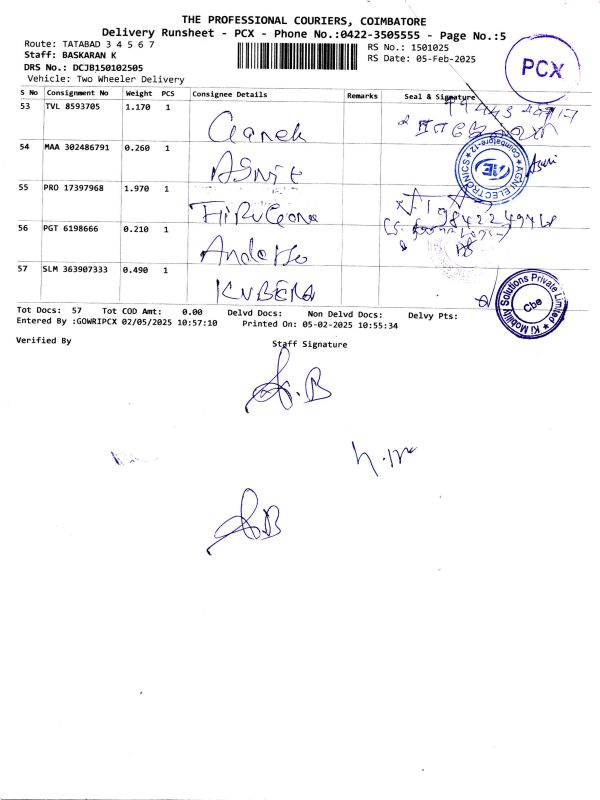 THE PROFESSIONAL COURIERS, COIMBATORE
Delivery Runsheet - PCX - Phone No.:0422-3505555 - Page No.:5
Route: TATABAD 3 4 5 6 7
RS No.: 1501025
Staff: BASKARAN K
RS Date: 05-Feb-2025
DRS No.: DCJB150102505
Vehicle: Two Wheeler Delivery
PCX
S No Consignment No Weight PCS Consignee Details Remarks Seal & Signature
53 TVL 8593705 1.170 1
54 MAA 302486791 0.260 1
AGNI ELECTRONICS ★ Coimbatore-12 ★
AE
55 PRO 17397968 1.970 1
56 PGT 6198666 0.210 1
57 SLM 363907333 0.490 1 KUBERA
Ki Mobility Solutions Private Limited ★
Cbe
Tot Docs: 57 Tot COD Amt: 0.00 Delvd Docs: Non Delvd Docs: Delvy Pts:
Entered By :GOWRIPCX 02/05/2025 10:57:10 Printed On: 05-02-2025 10:55:34
Verified By Staff Signature